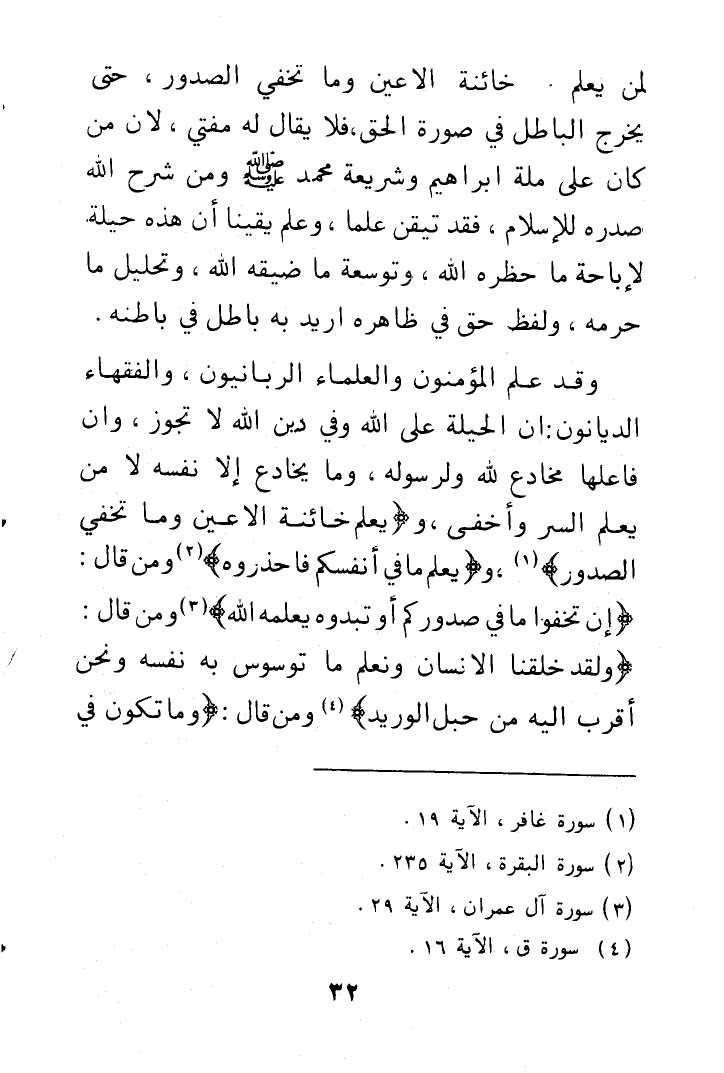 لمن يعلم . خائنة الاعين وما تخفي الصدور ، حتى
يخرج الباطل في صورة الحق،فلا يقال له مفتي ، لان من
كان على ملة ابراهيم وشريعة محمد ﷺ ومن شرح الله
صدره للإسلام ، فقد تيقن علما ، وعلم يقينا أن هذه حيلة
لإباحة ما حظره الله ، وتوسعة ما ضيقه الله ، وتحليل ما
حرمه ، ولفظ حق في ظاهره اريد به باطل في باطنه .
وقد علم المؤمنون والعلماء الربانيون ، والفقهاء
الديانون:ان الحيلة على الله وفي دين الله لا تجوز ، وان
فاعلها مخادع لله ولرسوله ، وما يخادع إلا نفسه لا من
يعلم السر وأخفى ،و﴿يعلم خائنة الاعين وما تخفي
الصدور﴾(١) ،و﴿يعلم ما في أنفسكم فاحذروه﴾(٢)ومن قال :
﴿إن تخفوا ما في صدوركم أو تبدوه يعلمه الله﴾(٣)ومن قال :
﴿ولقد خلقنا الانسان ونعلم ما توسوس به نفسه ونحن
أقرب اليه من حبل الوريد﴾(٤) ومن قال :﴿وما تكون في
(١) سورة غافر ، الآية ١٩ .
(٢) سورة البقرة ، الآية ٢٣٥ .
(٣) سورة آل عمران ، الآية ٢٩ .
(٤) سورة ق ، الآية ١٦ .
٣٢